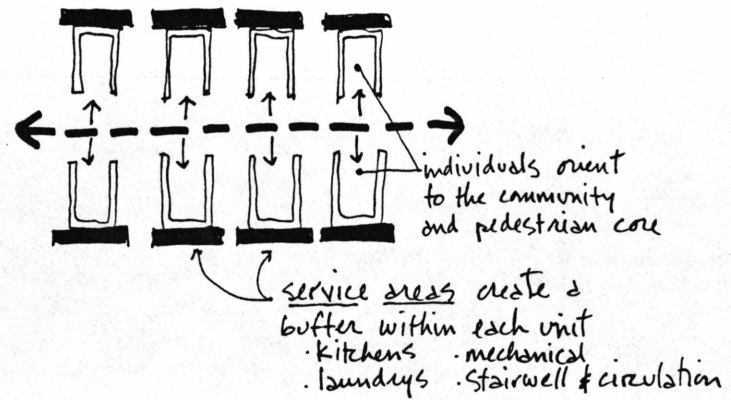 individuals orient
to the community
and pedestrian core
service areas create a
buffer within each unit
· kitchens · mechanical
· laundrys · stairwell & circulation